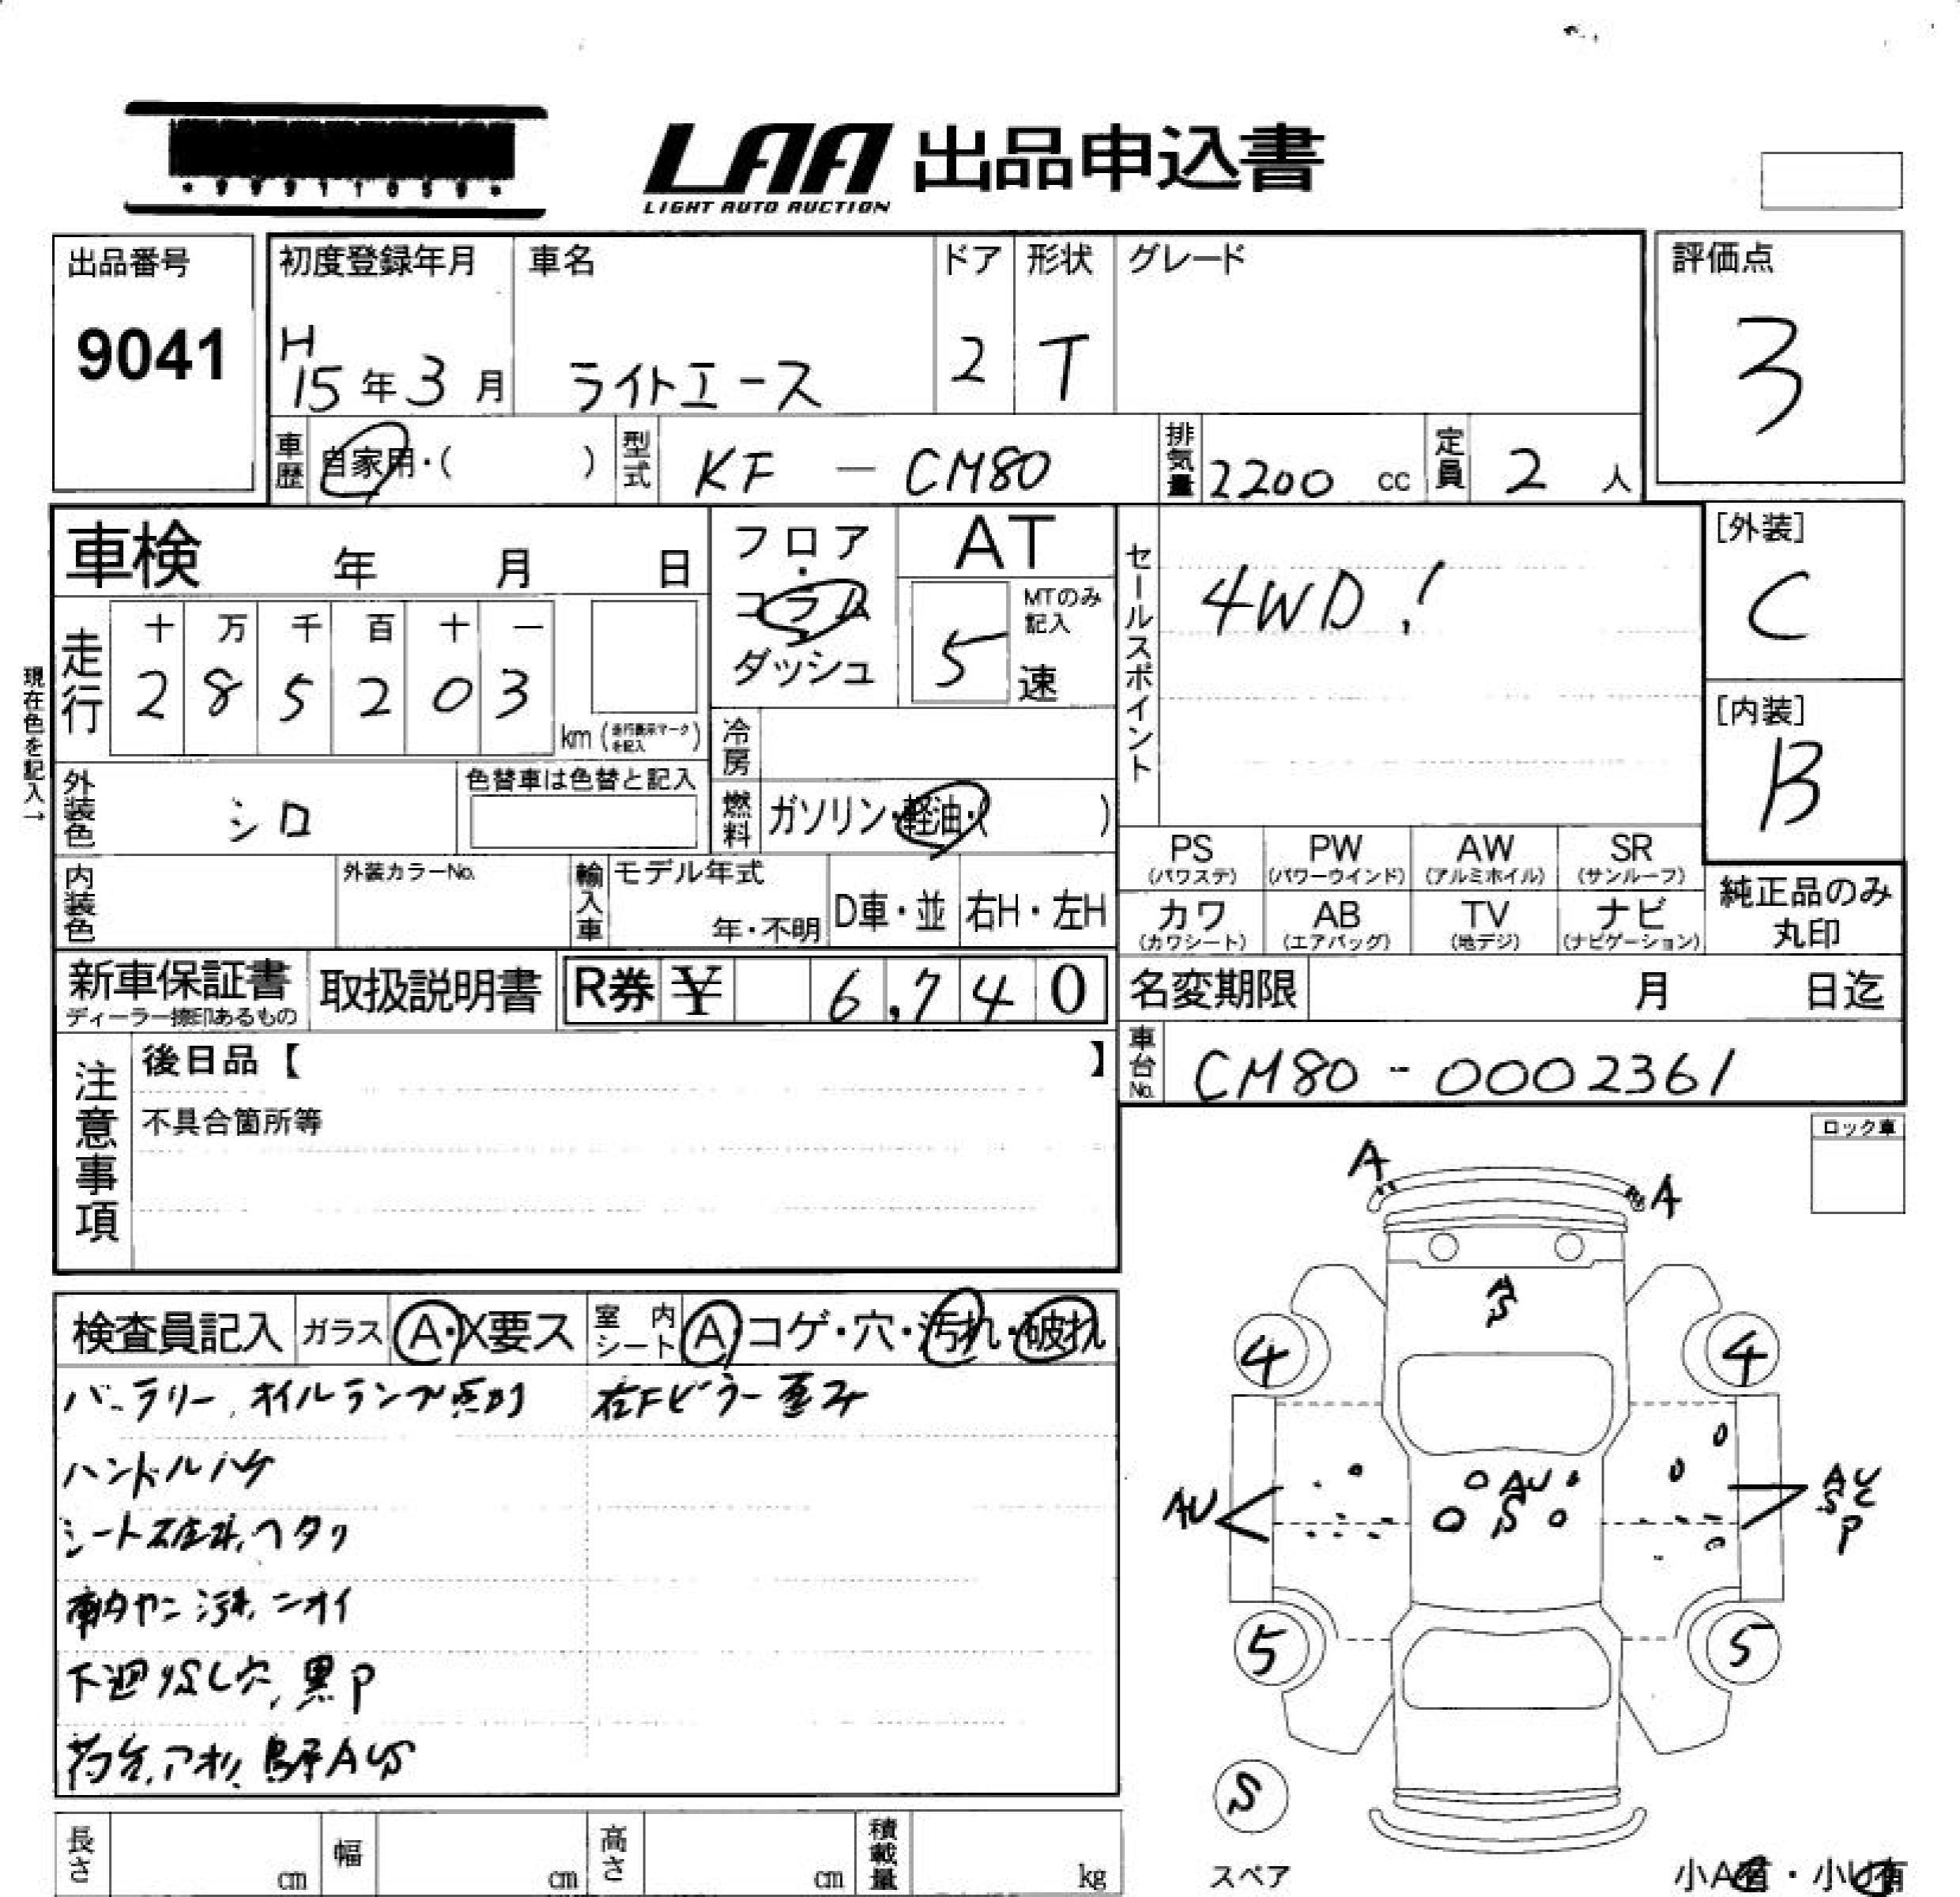 LAA 出品申込書
LIGHT AUTO AUCTION
出品番号
9041
初度登録年月
H
15年3月
車名
ライトエース
ドア
2
形状
T
グレード
評価点
3
車歴
自家用・( )
型式
KF - CM80
排気量
2200 cc
定員
2 人
車検 年 月 日
フロア
・
コラム
・
ダッシュ
AT
MTのみ
記入
5 速
セールスポイント
4WD!
[外装]
C
[内装]
B
現在色を記入→
走行
十 万 千 百 十 一
2 8 5 2 0 3
km (走行表示マークを記入)
冷房
外装色
シロ
色替車は色替と記入
燃料
ガソリン・軽油・( )
PS
(パワステ)
PW
(パワーウインド)
AW
(アルミホイル)
SR
(サンルーフ)
内装色
外装カラーNo.
輸入車
モデル年式
年・不明
D車・並
右H・左H
カワ
(カワシート)
AB
(エアバッグ)
TV
(地デジ)
ナビ
(ナビゲーション)
純正品のみ
丸印
新車保証書
ディーラー捺印あるもの
取扱説明書
R券 ¥ 6,740
名変期限 月 日迄
車台No.
CM80-0002361
注意事項
後日品【 】
不具合箇所等
ロック車
A
A
A
S
4
4
検査員記入
ガラス
A・X要ス
室内シート
A・コゲ・穴・汚れ・破れ
バッテリー、オイルランプ点灯
右Fピラー歪み
ハンドルハゲ
AU
AU
S
AU
S C
P
シート破れ、ヘタリ
車内ヤニ汚れ、ニオイ
5
5
下廻りSし穴、黒P
荷台、アオリ、鳥居AUS
S
スペア
長さ cm
幅 cm
高さ cm
積載量 kg
小A有・小U有